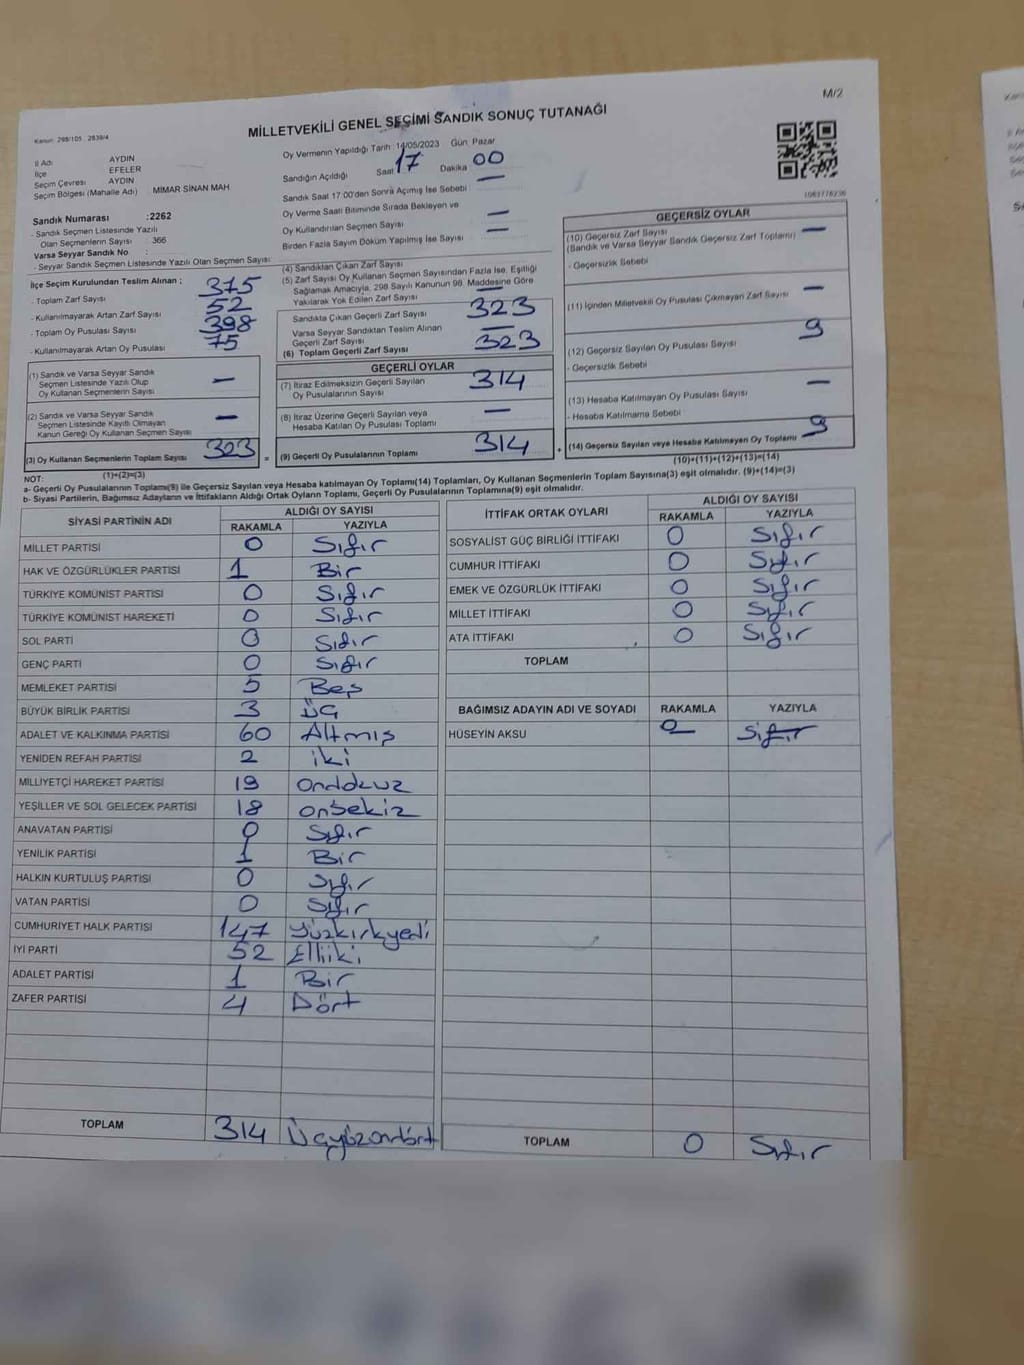 M/2
Kanun: 298/105 , 2839/4
MİLLETVEKİLİ GENEL SEÇİMİ SANDIK SONUÇ TUTANAĞI
İl Adı AYDIN
İlçe EFELER
Seçim Çevresi AYDIN
Seçim Bölgesi (Mahalle Adı) MİMAR SİNAN MAH
Sandık Numarası :2262
- Sandık Seçmen Listesinde Yazılı
Olan Seçmenlerin Sayısı : 366
Varsa Seyyar Sandık No :
- Seyyar Sandık Seçmen Listesinde Yazılı Olan Seçmen Sayısı:
Oy Vermenin Yapıldığı Tarih :14/05/2023 Gün: Pazar
Sandığın Açıldığı Saat 17 Dakika 00
Sandık Saat 17:00'den Sonra Açımış İse Sebebi —
Oy Verme Saati Bitiminde Sırada Bekleyen ve
Oy Kullandırılan Seçmen Sayısı —
Birden Fazla Sayım Döküm Yapılmış İse Sayısı —
İlçe Seçim Kurulundan Teslim Alınan ;
- Toplam Zarf Sayısı 375
- Kullanılmayarak Artan Zarf Sayısı 52
- Toplam Oy Pusulası Sayısı 398
- Kullanılmayarak Artan Oy Pusulası 75
(1) Sandık ve Varsa Seyyar Sandık
Seçmen Listesinde Yazılı Olup
Oy Kullanan Seçmenlerin Sayısı —
(2) Sandık ve Varsa Seyyar Sandık
Seçmen Listesinde Kayıtlı Olmayan
Kanun Gereği Oy Kullanan Seçmen Sayısı —
(3) Oy Kullanan Seçmenlerin Toplam Sayısı 323 =
(1)+(2)=(3)
(4) Sandıktan Çıkan Zarf Sayısı
(5) Zarf Sayısı Oy Kullanan Seçmen Sayısından Fazla İse, Eşitliği
Sağlamak Amacıyla, 298 Sayılı Kanunun 98. Maddesine Göre
Yakılarak Yok Edilen Zarf Sayısı —
Sandıkta Çıkan Geçerli Zarf Sayısı 323
Varsa Seyyar Sandıktan Teslim Alınan
Geçerli Zarf Sayısı —
(6) Toplam Geçerli Zarf Sayısı 323
GEÇERLİ OYLAR
(7) İtiraz Edilmeksizin Geçerli Sayılan
Oy Pusulalarının Sayısı 314
(8) İtiraz Üzerine Geçerli Sayılan veya
Hesaba Katılan Oy Pusulası Toplamı —
(9) Geçerli Oy Pusulalarının Toplamı 314 +
1083776236
GEÇERSİZ OYLAR
(10) Geçersiz Zarf Sayısı
(Sandık ve Varsa Seyyar Sandık Geçersiz Zarf Toplamı) —
- Geçersizlik Sebebi
(11) İçinden Milletvekili Oy Pusulası Çıkmayan Zarf Sayısı —
(12) Geçersiz Sayılan Oy Pusulası Sayısı 9
- Geçersizlik Sebebi
(13) Hesaba Katılmayan Oy Pusulası Sayısı —
- Hesaba Katılmama Sebebi
(14) Geçersiz Sayılan veya Hesaba Katılmayan Oy Toplamı 9
(10)+(11)+(12)+(13)=(14)
NOT:
a- Geçerli Oy Pusulalarının Toplamı(9) ile Geçersiz Sayılan veya Hesaba katılmayan Oy Toplamı(14) Toplamları, Oy Kullanan Seçmenlerin Toplam Sayısına(3) eşit olmalıdır. (9)+(14)=(3)
b- Siyasi Partilerin, Bağımsız Adayların ve İttifakların Aldığı Ortak Oyların Toplamı, Geçerli Oy Pusulalarının Toplamına(9) eşit olmalıdır.
SİYASİ PARTİNİN ADI ALDIĞI OY SAYISI
RAKAMLA YAZIYLA
MİLLET PARTİSİ 0 Sıfır
HAK VE ÖZGÜRLÜKLER PARTİSİ 1 Bir
TÜRKİYE KOMÜNİST PARTİSİ 0 Sıfır
TÜRKİYE KOMÜNİST HAREKETİ 0 Sıfır
SOL PARTİ 0 Sıfır
GENÇ PARTİ 0 Sıfır
MEMLEKET PARTİSİ 5 Beş
BÜYÜK BİRLİK PARTİSİ 3 Üç
ADALET VE KALKINMA PARTİSİ 60 Altmış
YENİDEN REFAH PARTİSİ 2 iki
MİLLİYETÇİ HAREKET PARTİSİ 19 Ondokuz
YEŞİLLER VE SOL GELECEK PARTİSİ 18 onsekiz
ANAVATAN PARTİSİ 0 Sıfır
YENİLİK PARTİSİ 1 Bir
HALKIN KURTULUŞ PARTİSİ 0 Sıfır
VATAN PARTİSİ 0 Sıfır
CUMHURİYET HALK PARTİSİ 147 yüzkırkyedi
İYİ PARTİ 52 Elliiki
ADALET PARTİSİ 1 Bir
ZAFER PARTİSİ 4 Dört
TOPLAM 314 Üçyüzondört
İTTİFAK ORTAK OYLARI ALDIĞI OY SAYISI
RAKAMLA YAZIYLA
SOSYALİST GÜÇ BİRLİĞİ İTTİFAKI 0 Sıfır
CUMHUR İTTİFAKI 0 Sıfır
EMEK VE ÖZGÜRLÜK İTTİFAKI 0 Sıfır
MİLLET İTTİFAKI 0 Sıfır
ATA İTTİFAKI 0 Sıfır
TOPLAM
BAĞIMSIZ ADAYIN ADI VE SOYADI RAKAMLA YAZIYLA
HÜSEYİN AKSU 0 Sıfır
TOPLAM 0 Sıfır